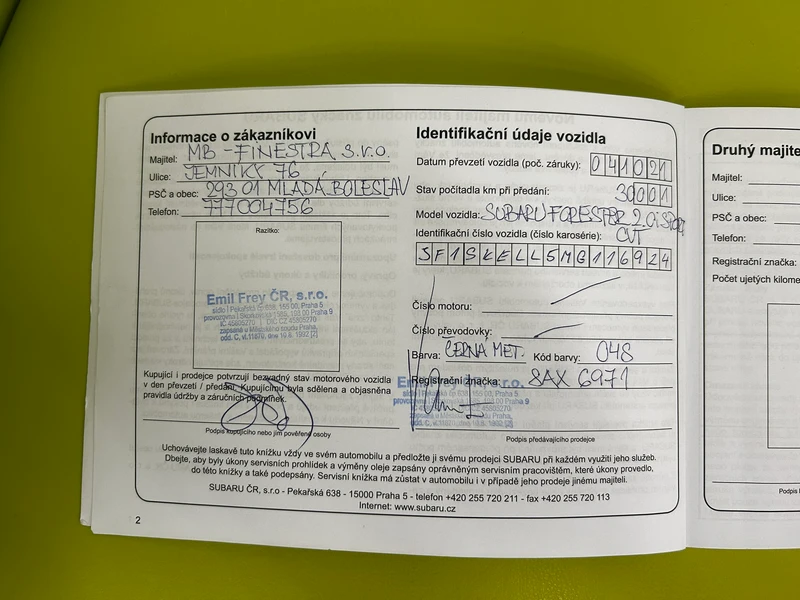 Informace o zákazníkovi
Majitel: MB-FINESTRA s.r.o.
Ulice: JEMNÍKY 76
PSČ a obec: 293 01 MLADÁ BOLESLAV
Telefon: 777004756
Razítko:
Emil Frey ČR, s.r.o.
sídlo | Pekařská 638, 155 00, Praha 5
IČ 45805270 | DIČ CZ45805270
zapsaná u Městského soudu Praha,
Kupující i prodejce potvrzují bezvadný stav motorového vozidla
v den převzetí / předání. Kupujícímu byla sdělena a objasněna
pravidla údržby a záručních podmínek.
Podpis kupujícího nebo jím pověřené osoby
Identifikační údaje vozidla
Datum převzetí vozidla (poč. záruky): 041021
Stav počítadla km při předání: 30001
Model vozidla: SUBARU FORESTER 2.0i SPORT
CVT
Identifikační číslo vozidla (číslo karosérie):
JF1SKELL5MG116924
Číslo motoru:
Číslo převodovky:
Barva: ČERNÁ MET. Kód barvy: 048
Registrační značka: 8AX 6971
Podpis předávajícího prodejce
Uchovávejte laskavě tuto knížku vždy ve svém automobilu a předložte ji svému prodejci SUBARU při každém využití jeho služeb.
Dbejte, aby byly úkony servisních prohlídek a výměny oleje zapsány oprávněným servisním pracovištěm, které úkony provedlo,
do této knížky a také podepsány. Servisní knížka má zůstat v automobilu i v případě jeho prodeje jinému majiteli.
SUBARU ČR, s.r.o - Pekařská 638 - 15000 Praha 5 - telefon +420 255 720 211 - fax +420 255 720 113
Internet: www.subaru.cz
2
Druhý majite
Majitel:
Ulice:
PSČ a obec:
Telefon:
Registrační značka:
Počet ujetých kilome
Podpis